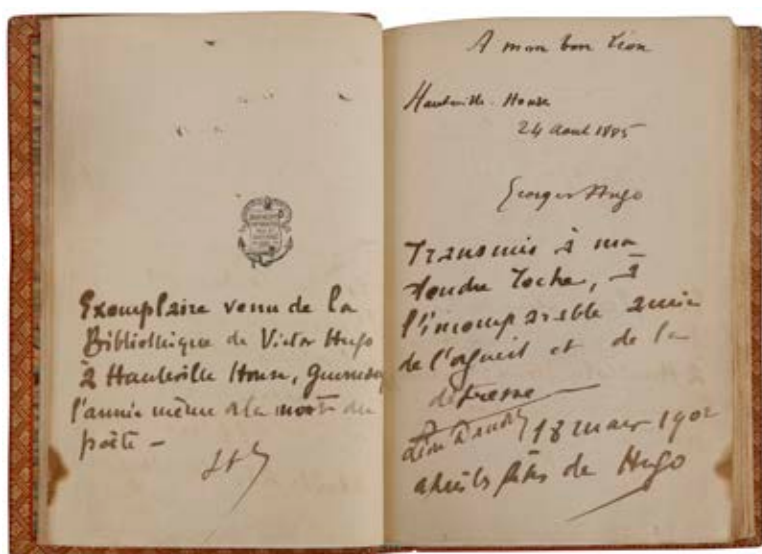 Exemplaire venu de la
Bibliothèque de Victor Hugo
à Hauteville House, Guernesey
l'année même de la mort du
poète —
A mon bon Léon
Hauteville-House
24 Aout 1885
Georges Hugo
Transmis à ma
tendre
l'incomparable amie
de l'orgueil et de la
détresse
Léon Daudet 18 mars 1902
après les fêtes de Hugo